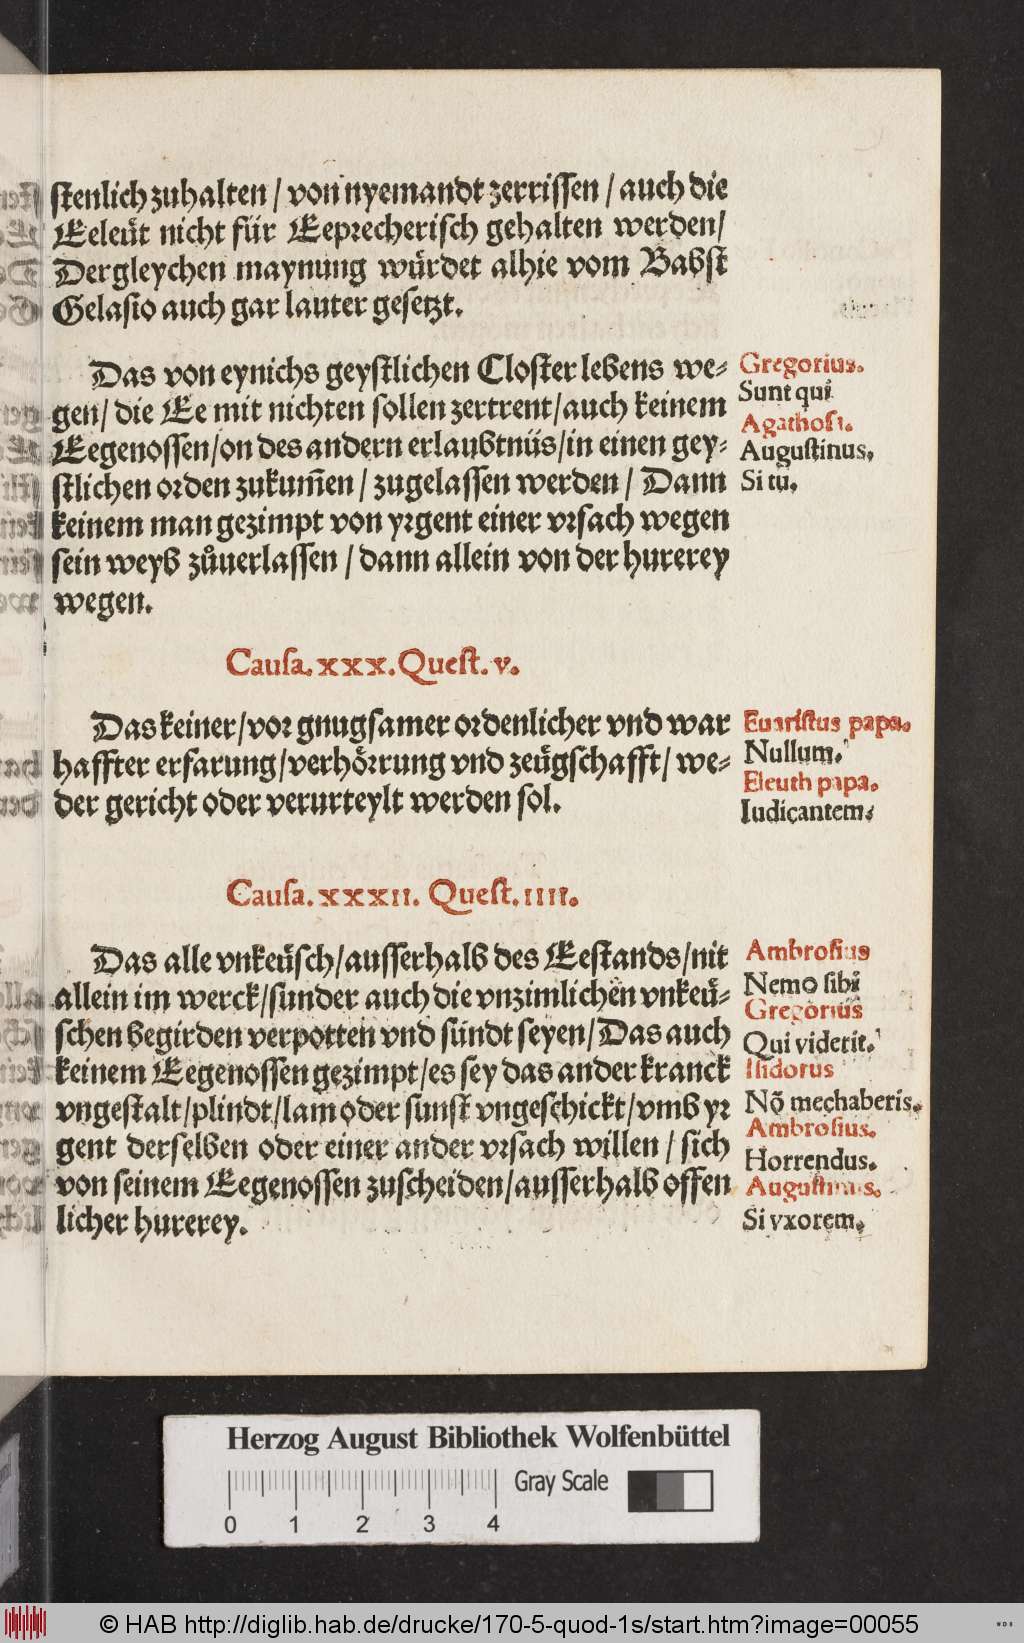 stenlich zuhalten / von nyemandt zerrissen / auch die
Eeleüt nicht für Eeprecherisch gehalten werden/
Dergleychen maynung würdet alhie vom Babst
Gelasio auch gar lauter gesetzt.
Das von eynichs geystlichen Closter lebens we⸗
gen/ die Ee mit nichten sollen zertrent/auch keinem
Eegenossen/on des andern erlaubtnüs/in einen gey⸗
stlichen orden zukum̃en / zugelassen werden / Dann
keinem man gezimpt von yrgent einer vrsach wegen
sein weyb zůuerlassen / dann allein von der hurerey
wegen.
Gregorius.
Sunt qui
Agathosi.
Augustinus.
Si tu.
Causa. xxx. Quest. v.
Das keiner/vor gnugsamer ordenlicher vnd war
haffter erfarung/verhörrung vnd zeügschafft/ we⸗
der gericht oder verurteylt werden sol.
Euaristus papa.
Nullum.
Eleuth papa.
Iudicantem.
Causa. xxxII. Quest. IIII.
Das alle vnkeüsch/ausserhalb des Eestands/nit
allein im werck/sunder auch die vnzimlichen vnkeü⸗
schen begirden verpotten vnd sündt seyen/ Das auch
keinem Eegenossen gezimpt/es sey das ander kranck
vngestalt/plindt/lam oder sunst vngeschickt/vmb yr
gent derselben oder einer ander vrsach willen / sich
von seinem Eegenossen zuscheiden/ausserhalb offen
licher hurerey.
Ambrosius
Nemo sibi
Gregorius
Qui viderit.
Isidorus
Nõ mechaberis.
Ambrosius.
Horrendus.
Augustinus.
Si vxorem.
Herzog August Bibliothek Wolfenbüttel
Gray Scale
0 1 2 3 4
© HAB http://diglib.hab.de/drucke/170-5-quod-1s/start.htm?image=00055